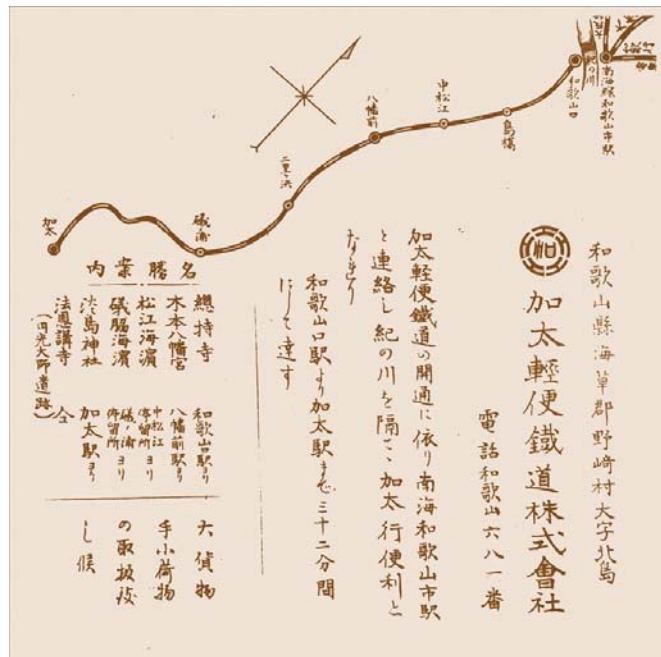 和歌山口
紀の川
南海線和歌山市駅
島橋
中松江
八幡前
二里ヶ浜
磯ノ浦
加太
和歌山縣海草郡野崎村大字北島
加太輕便鐵道株式會社
電話和歌山六八一番
加太輕便鐵道の開通に依り南海和歌山市駅
と連絡し紀の川を隔て、加太行便利と
なれり
和歌山口駅より加太駅まで三十二分間
にして達す
名勝案内
總持寺 和歌山口駅より
木本八幡宮 八幡前駅より
松江海濱 中松江停留所ヨリ
磯脇海濱 磯ノ浦停留所ヨリ
淡島神社 加太駅より
法恩講寺 仝
(円光大師遺跡)
大貨物
手小荷物
の取扱致
し候